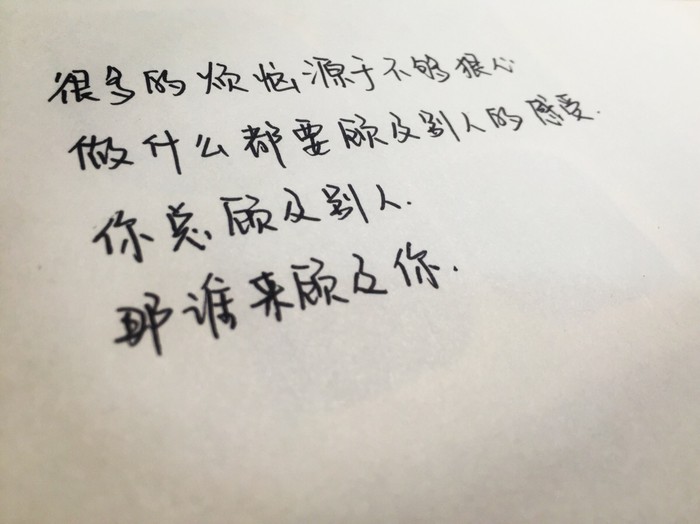 很多的烦恼源于不够狠心
做什么都要顾及别人的感受.
你总顾及别人.
那谁来顾及你.